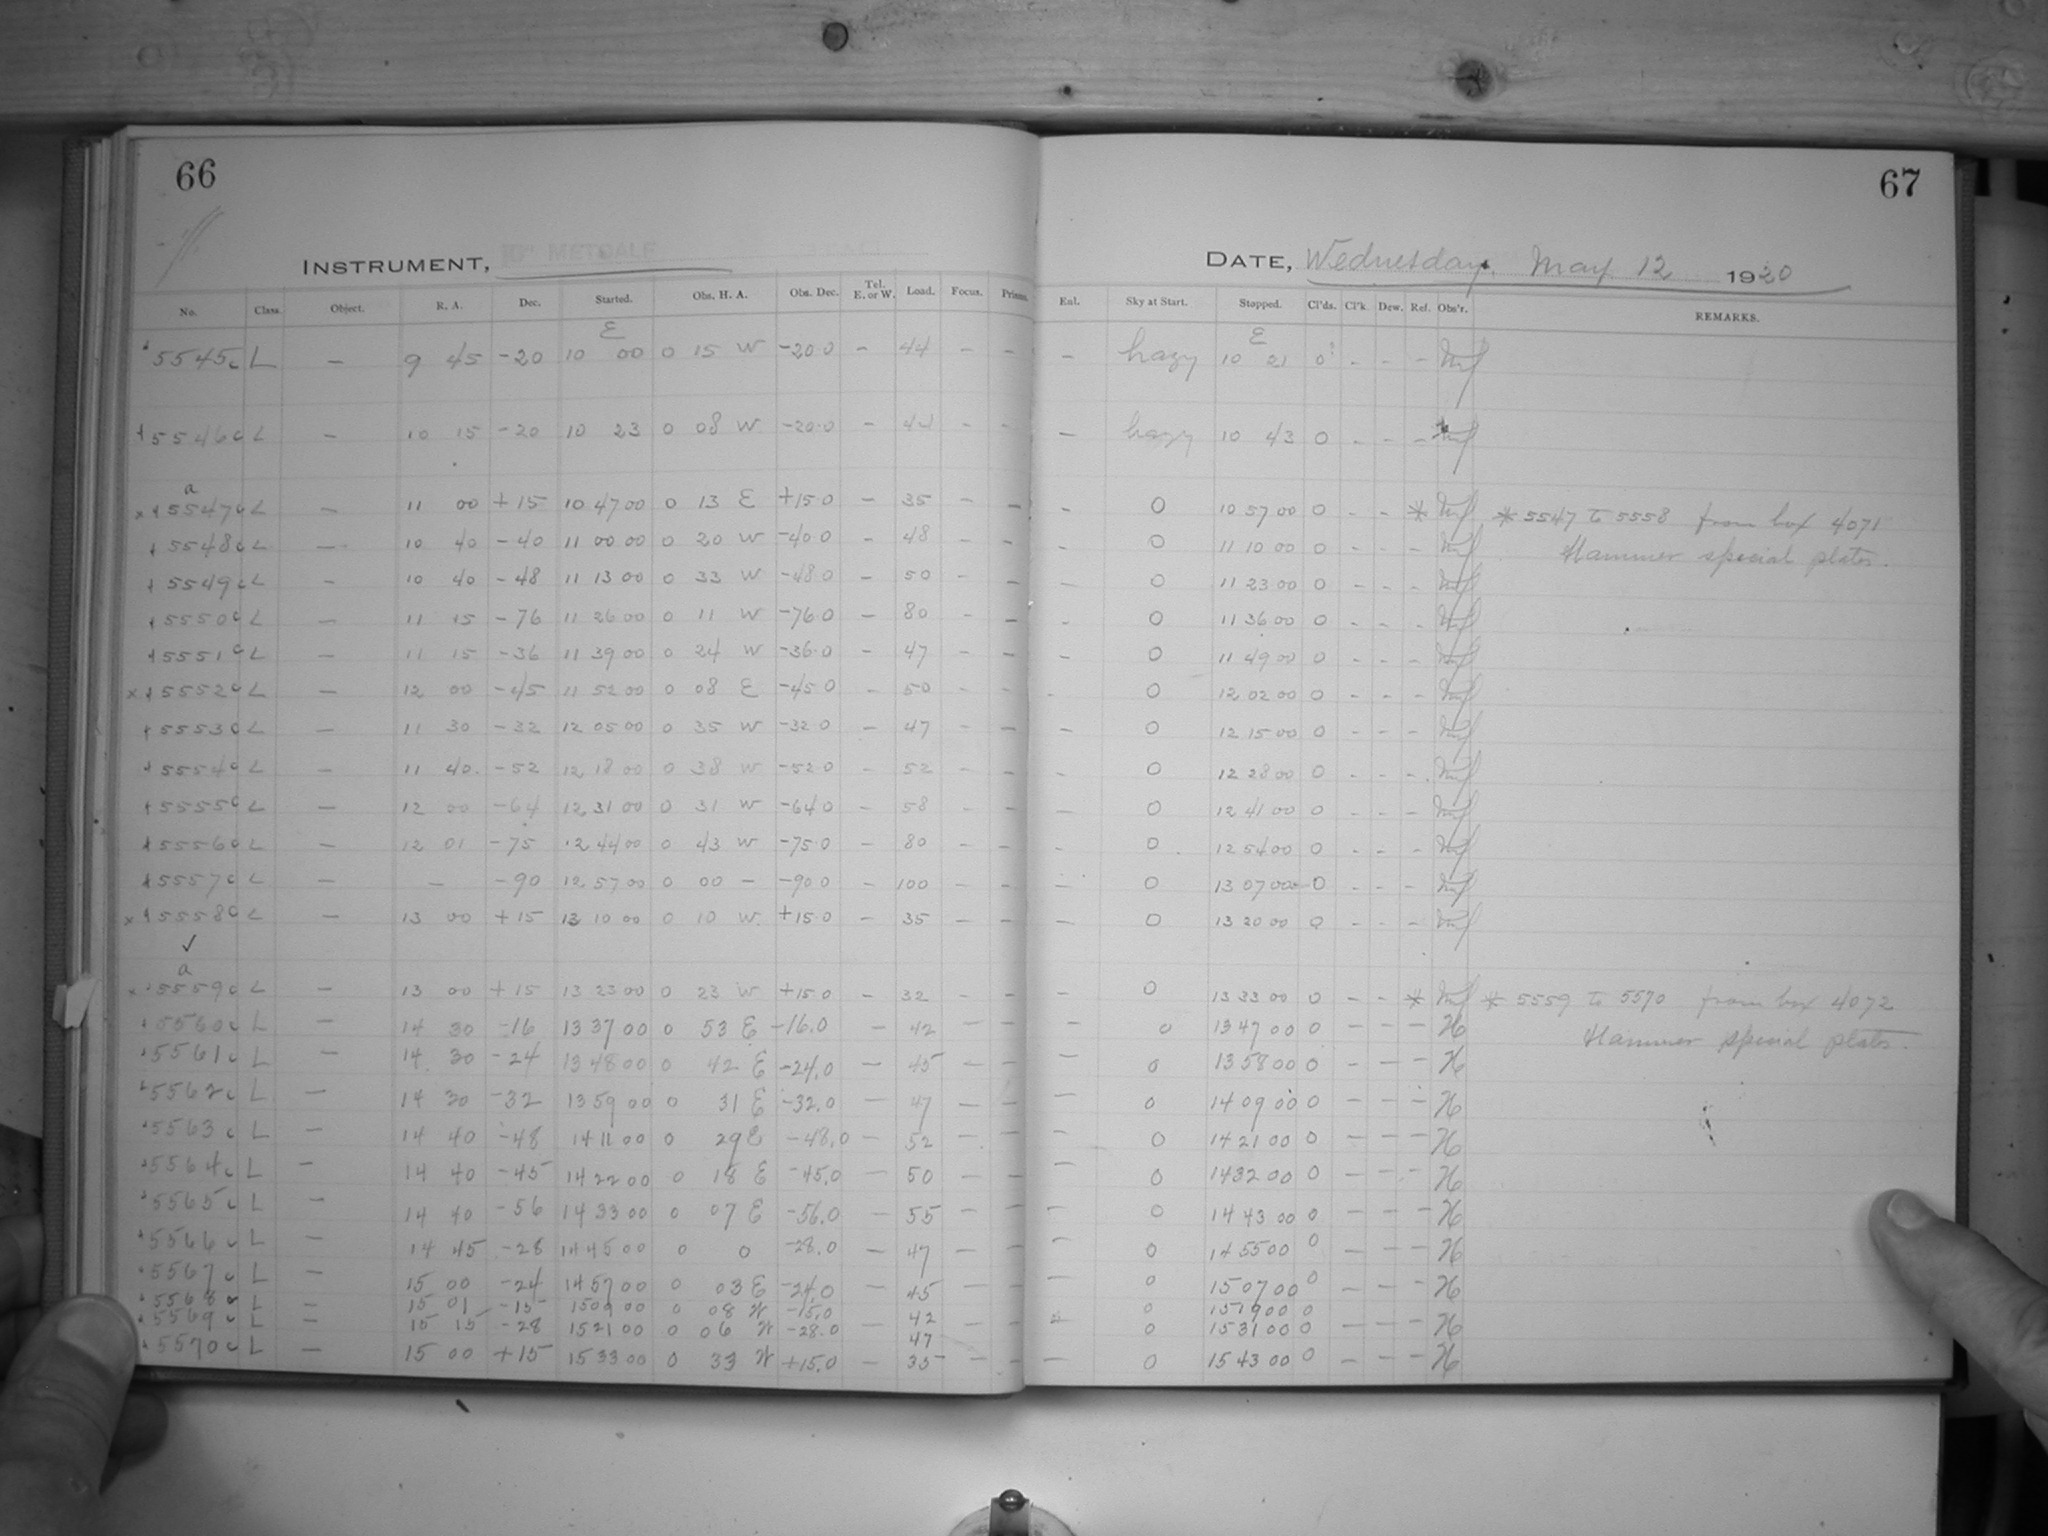 66
INSTRUMENT, 10" METCALF
No. Class. Object. R. A. Dec. Started. Obs. H. A. Obs. Dec. Tel. E. or W. Load. Focus. Prisms.
E
5545c L — 9 45 -20 10 00 0 15 W -20.0 — 44 — —
+5546c L — 10 15 -20 10 23 0 08 W -20.0 — 44 — —
a
x+5547c L — 11 00 +15 10 47 00 0 13 E +15.0 — 35 — —
+5548c L — 10 40 -40 11 00 00 0 20 W -40.0 — 48 — —
+5549c L — 10 40 -48 11 13 00 0 33 W -48.0 — 50 — —
+5550c L — 11 15 -76 11 26 00 0 11 W -76.0 — 80 — —
+5551c L — 11 15 -36 11 39 00 0 24 W -36.0 — 47 — —
x+5552c L — 12 00 -45 11 52 00 0 08 E -45.0 — 50 — —
+5553c L — 11 30 -32 12 05 00 0 35 W -32.0 — 47 — —
+5554c L — 11 40. -52 12 18 00 0 38 W -52.0 — 52 — —
+5555c L — 12 00 -64 12 31 00 0 31 W -64.0 — 58 — —
+5556c L — 12 01 -75 12 44 00 0 43 W -75.0 — 80 — —
+5557c L — — -90 12 57 00 0 00 — -90.0 — 100 — —
x+5558c L — 13 00 +15 13 10 00 0 10 W. +15.0 — 35 — —
✓
a
x+5559c L — 13 00 +15 13 23 00 0 23 W +15.0 — 32 — —
+5560c L — 14 30 -16 13 37 00 0 53 E -16.0 — 42 — —
+5561c L — 14 30 -24 13 48 00 0 42 E -24.0 — 45 — —
+5562c L — 14 30 -32 13 59 00 0 31 E -32.0 — 47 — —
+5563c L — 14 40 -48 14 11 00 0 29 E -48.0 — 52 — —
+5564c L — 14 40 -45 14 22 00 0 18 E -45.0 — 50 — —
+5565c L — 14 40 -56 14 33 00 0 07 E -56.0 — 55 — —
+5566c L — 14 45 -28 14 45 00 0 0 -28.0 — 47 — —
+5567c L — 15 00 -24 14 57 00 0 03 E -24.0 — 45 — —
+5568c L — 15 01 -15 15 09 00 0 08 W -15.0 — 42 — —
+5569c L — 15 15 -28 15 21 00 0 06 W -28.0 47
+5570c L — 15 00 +15 15 33 00 0 33 W +15.0 — 35 — —
67
DATE, Wednesday, May 12 1920
Eal. Sky at Start. Stopped. Cl'ds. Cl'k. Dew. Ref. Obs'r. REMARKS.
E
— hazy 10 21 0? - - -
— hazy 10 43 0 - - -
— 0 10 57 00 0 - - * * 5547 to 5558 from box 4071
— 0 11 10 00 0 - - - Hammer special plates.
— 0 11 23 00 0 - - -
— 0 11 36 00 0 - - -
— 0 11 49 00 0 - - -
— 0 12 02 00 0 - - -
— 0 12 15 00 0 - - -
— 0 12 28 00 0 - - -
— 0 12 41 00 0 - - -
— 0 12 54 00 0 - - -
— 0 13 07 00 0 - - -
— 0 13 20 00 0 - - -
— 0 13 33 00 0 - - * * 5559 to 5570 from box 4072
— 0 13 47 00 0 — — — H
Hammer special plates.
— 0 13 58 00 0 — — — H
— 0 14 09 00 0 — — — H
— 0 14 21 00 0 — — — H
— 0 14 32 00 0 — — — H
— 0 14 43 00 0 — — — H
— 0 14 55 00 0 — — — H
— 0 15 07 00 0 — — — H
0 15 19 00 0
— 0 15 31 00 0 — — — H
— 0 15 43 00 0 — — — H